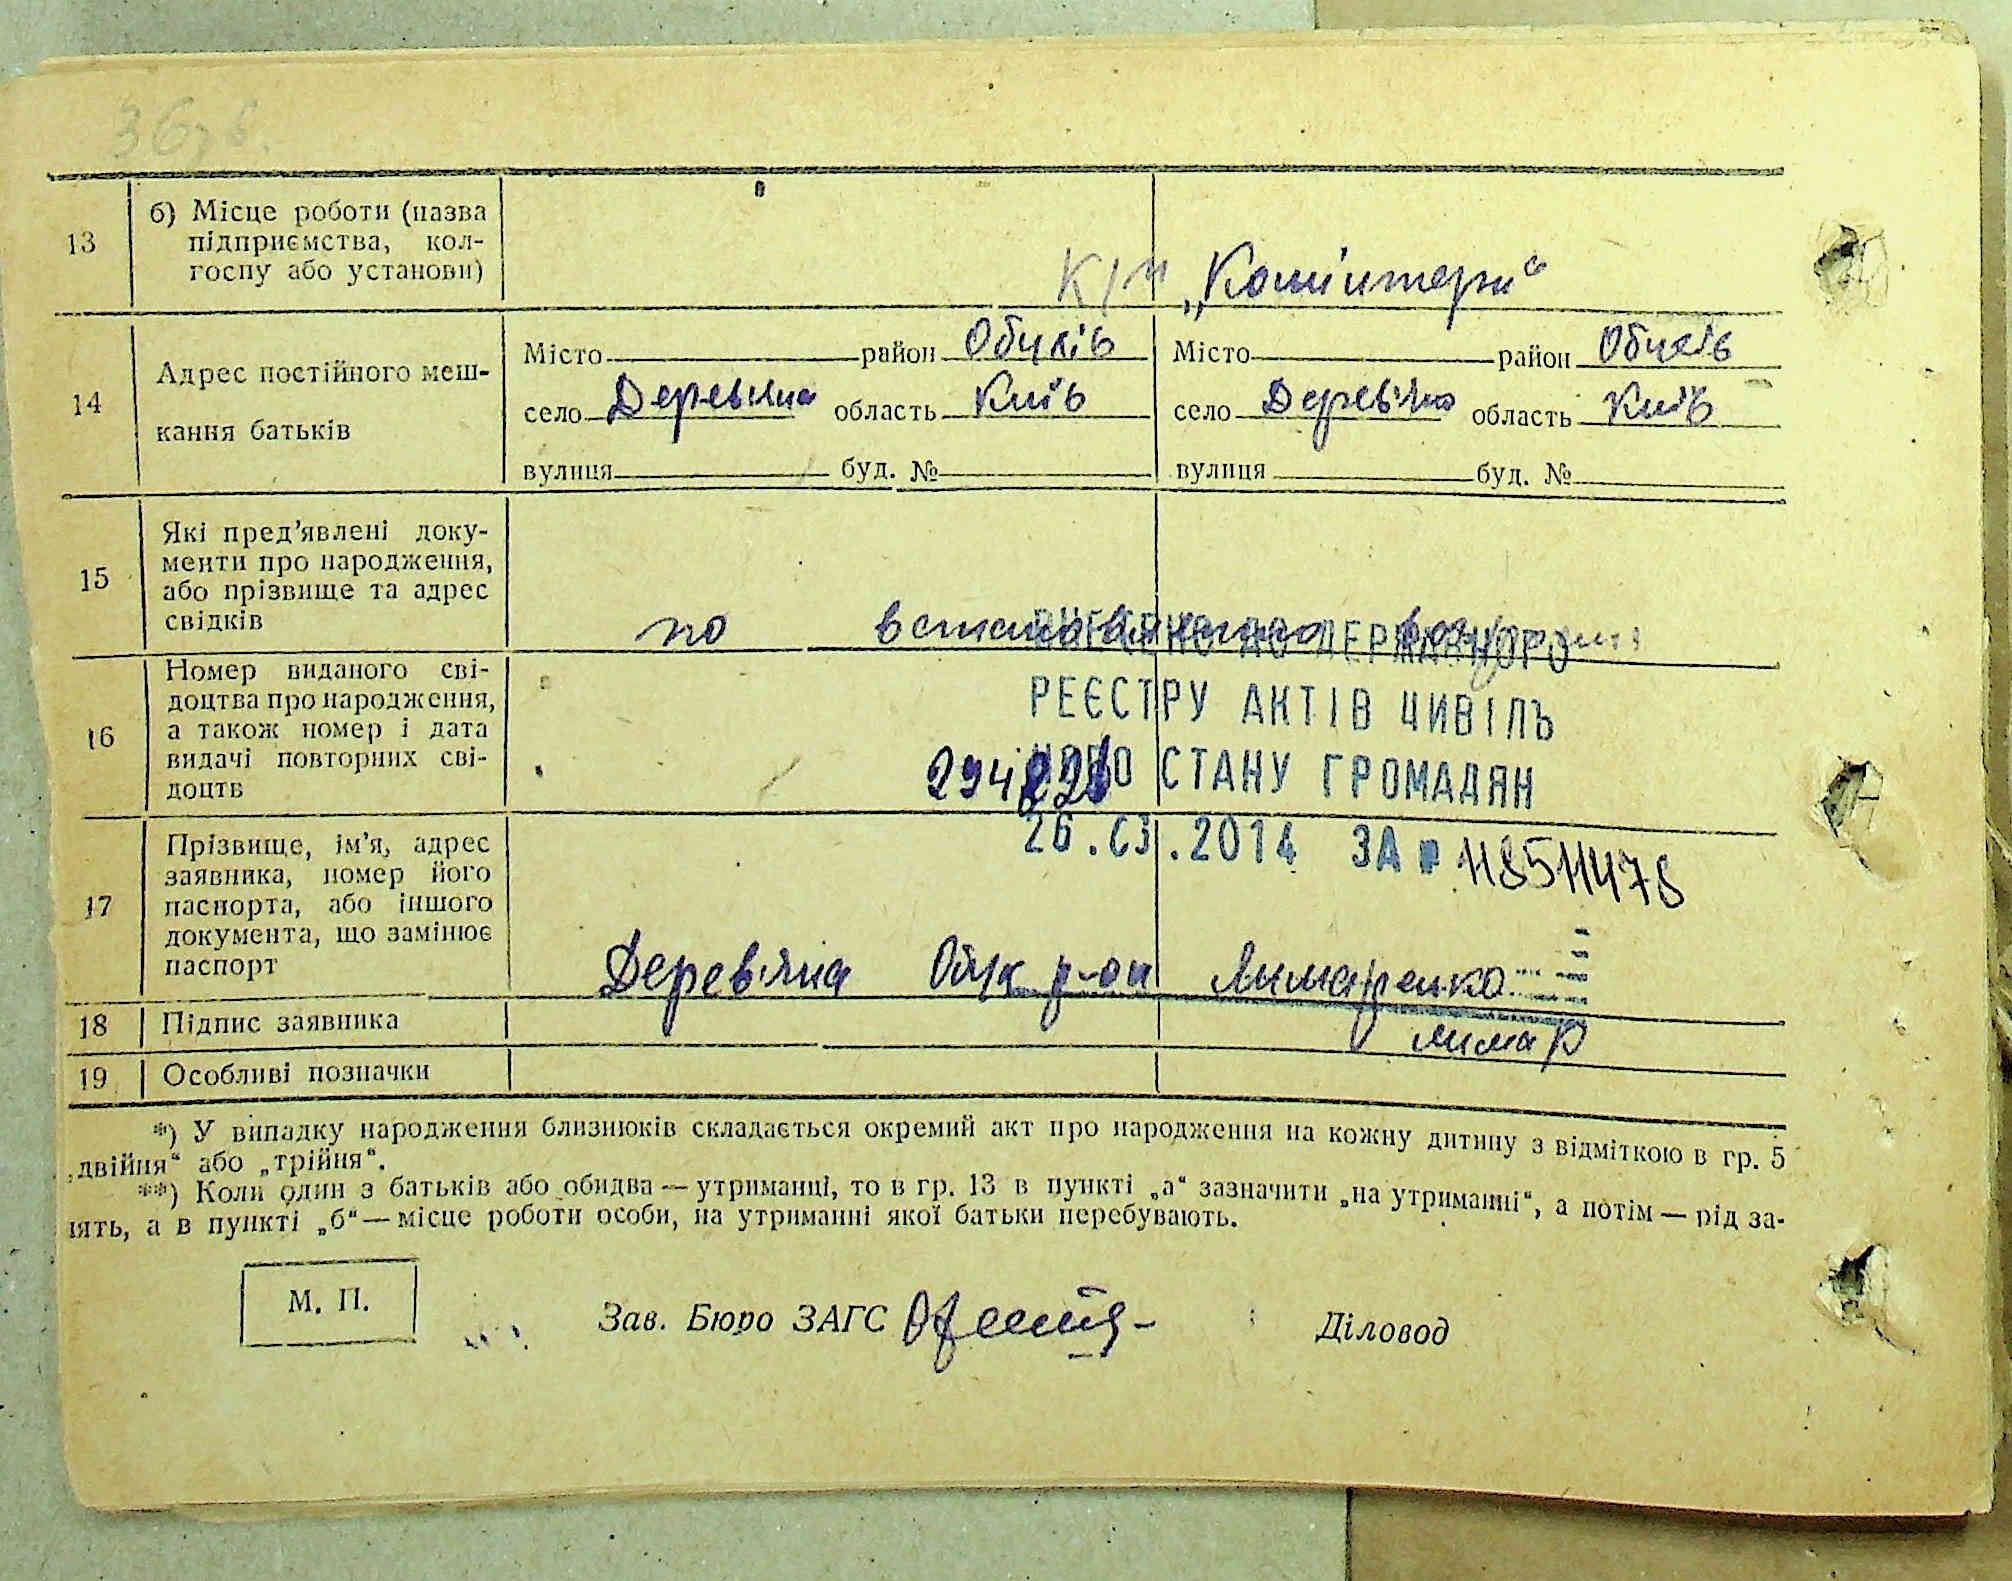 13
б) Місце роботи (назва
підприємства, кол-
госпу або установи)
К/г „Комінтерн“
14
Адрес постійного меш-
кання батьків
Місто район Обухів
село Дерев'яна область Київ
вулиця буд. №
Місто район Обухів
село Дерев'яна область Київ
вулиця буд. №
15
Які пред'явлені доку-
менти про народження,
або прізвище та адрес
свідків
по
16
Номер виданого сві-
доцтва про народження,
а також номер і дата
видачі повторних сві-
доцтв
ВНЕСЕНО ДО ДЕРЖАВНОГО
РЕЄСТРУ АКТІВ ЦИВІЛЬ
НОГО СТАНУ ГРОМАДЯН
26.03.2014 ЗА №
17
Прізвище, ім'я, адрес
заявника, номер його
паспорта, або іншого
документа, що замінює
паспорт
Дерев'яна Обух р-он Лимаренко
18
Підпис заявника
лимар
19
Особливі позначки
*) У випадку народження близнюків складається окремий акт про народження на кожну дитину з відміткою в гр. 5
„двійня“ або „трійня“.
**) Коли один з батьків або обидва — утриманці, то в гр. 13 в пункті „а“ зазначити „на утриманні“, а потім — рід за-
нять, а в пункті „б“ — місце роботи особи, на утриманні якої батьки перебувають.
М. П.
Зав. Бюро ЗАГС
Діловод